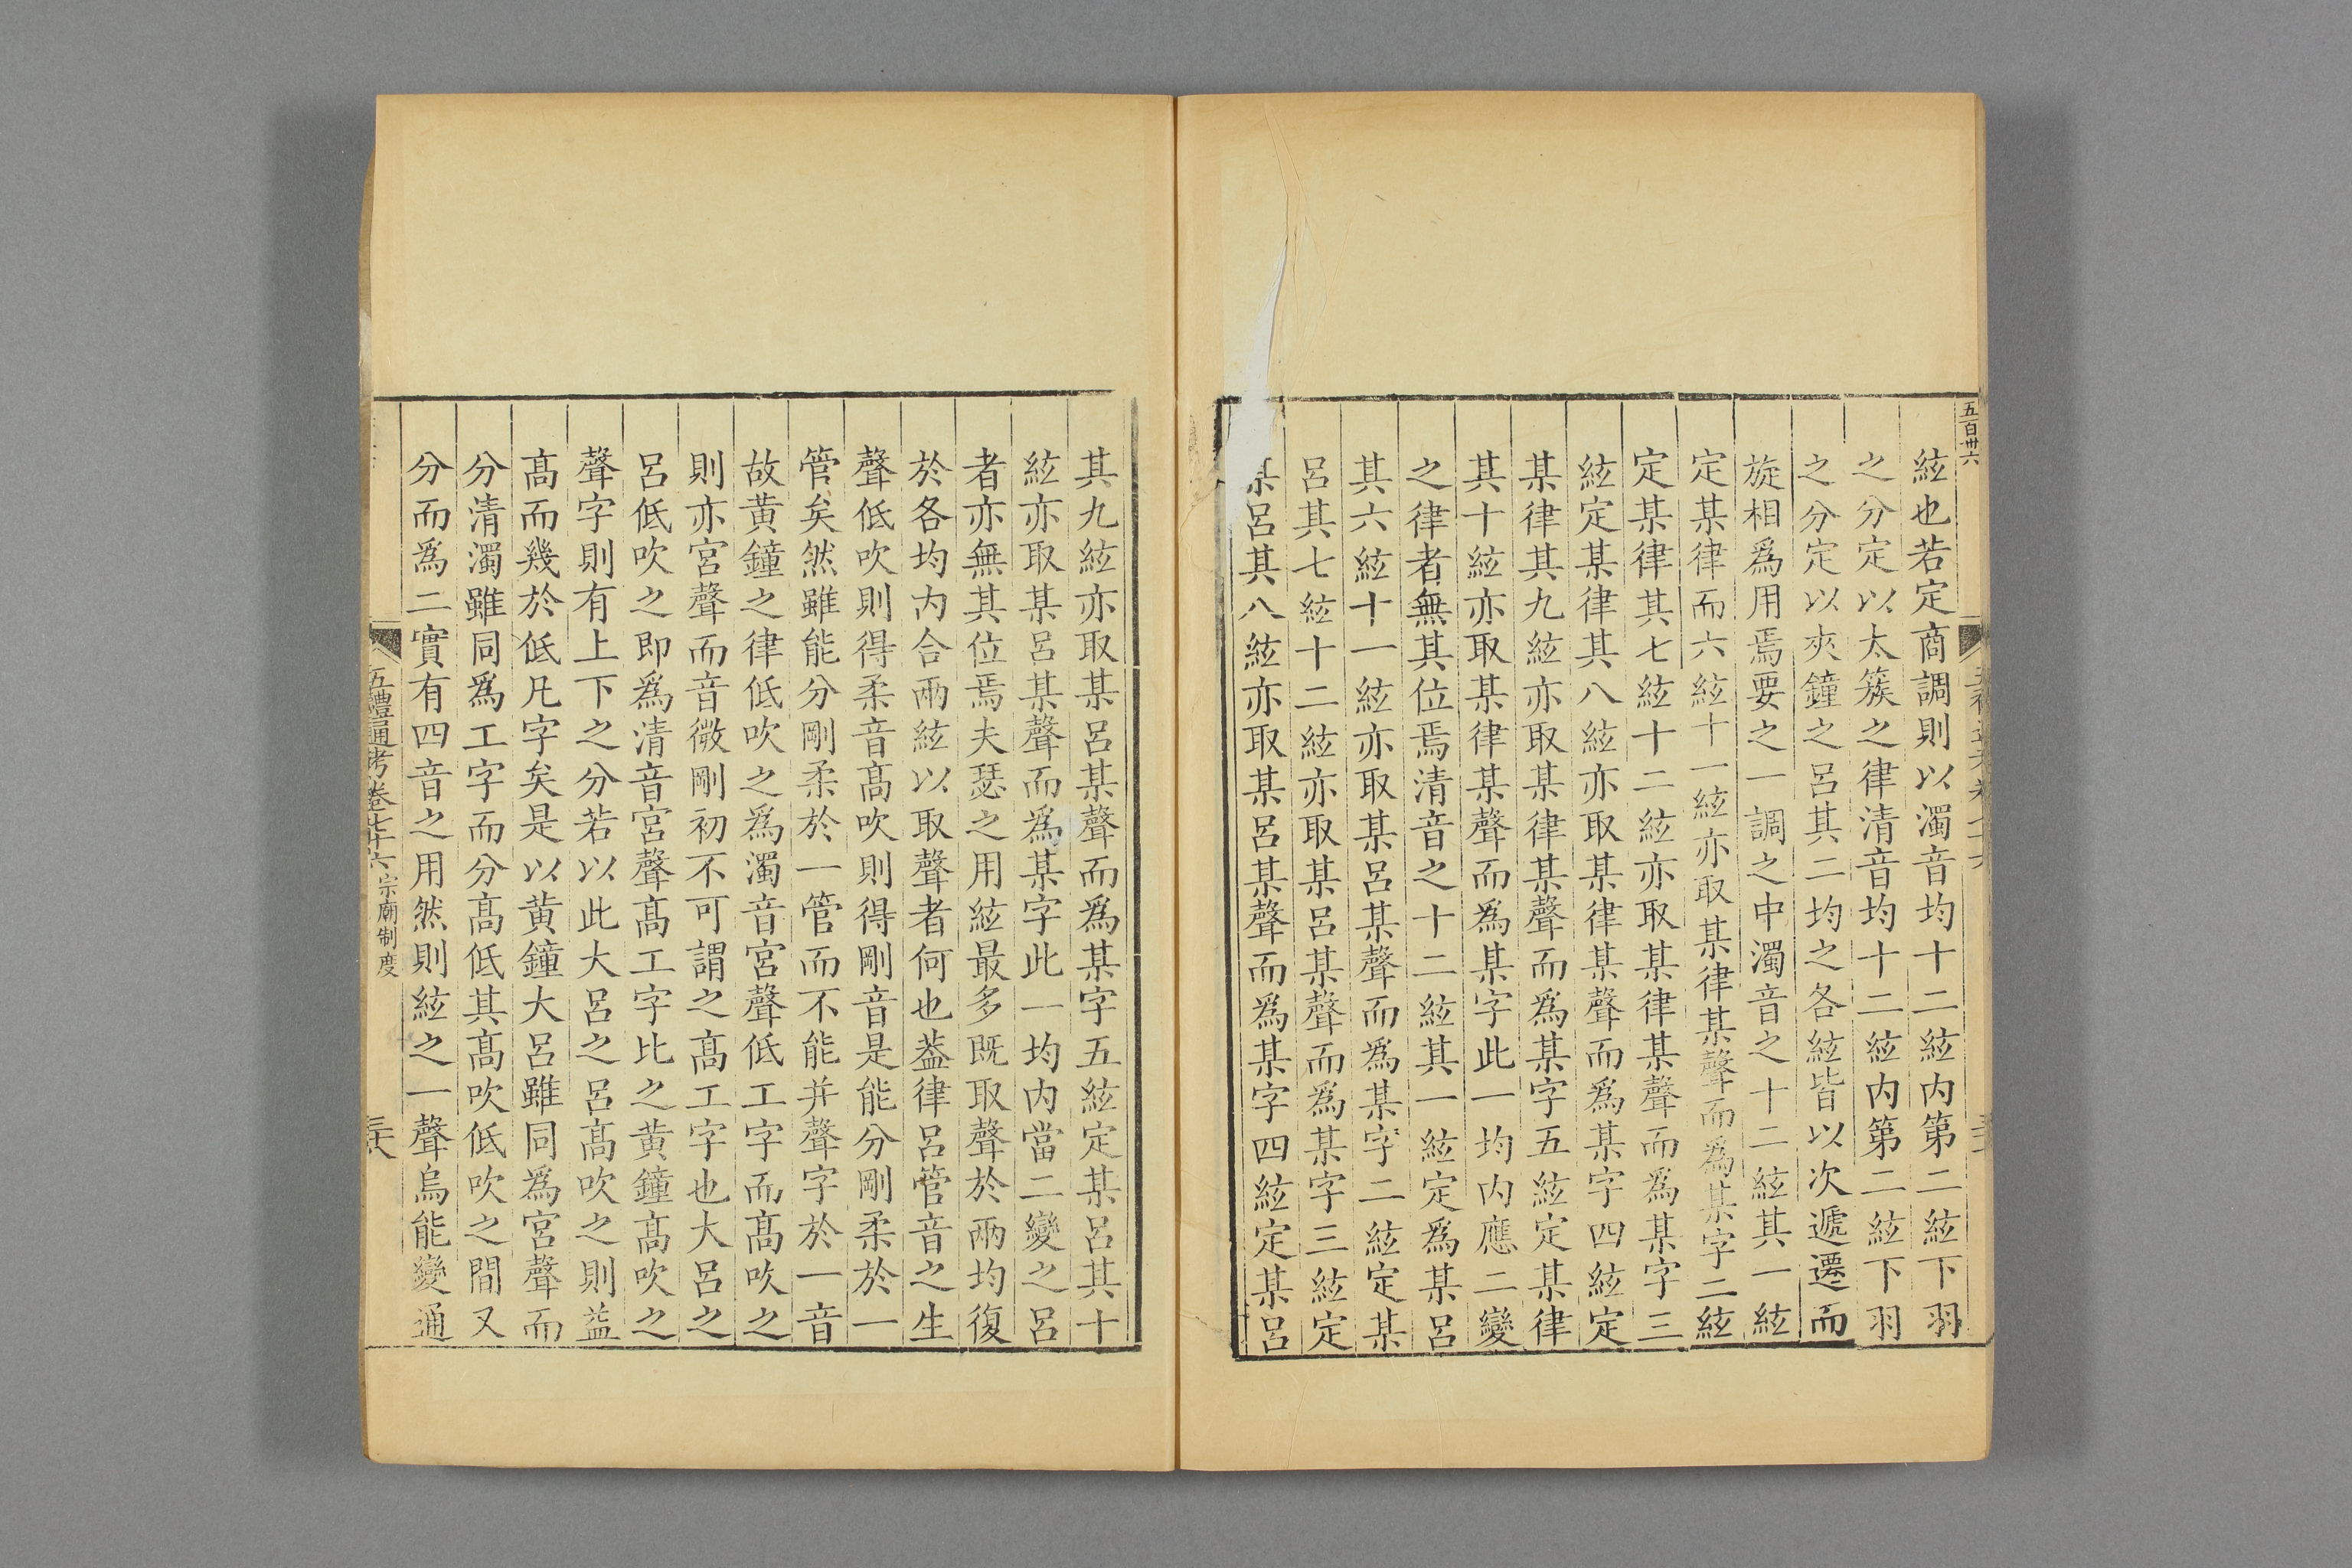 五百卅六
絃也若定商調則以濁音均十二絃内第二絃下羽
之分定以太簇之律清音均十二絃内第二絃下羽
之分定以夾鐘之呂其二均之各絃皆以次遞遷而
旋相爲用焉要之一調之中濁音之十二絃其一絃
定某律而六絃十一絃亦取某律某聲而爲某字二絃
定某律其七絃十二絃亦取某律某聲而爲某字三
絃定某律其八絃亦取某律某聲而爲某字四絃定
某律其九絃亦取某律某聲而爲某字五絃定某律
其十絃亦取某律某聲而爲某字此一均内應二變
之律者無其位焉清音之十二絃其一絃定爲某呂
其六絃十一絃亦取某呂某聲而爲某字二絃定某
呂其七絃十二絃亦取某呂某聲而爲某字三絃定
某呂其八絃亦取某呂某聲而爲某字四絃定某呂
其九絃亦取某呂某聲而爲某字五絃定某呂其十
絃亦取某呂某聲而爲某字此一均内當二變之呂
者亦無其位焉夫瑟之用絃最多既取聲於兩均復
於各均内合兩絃以取聲者何也葢律呂管音之生
聲低吹則得柔音高吹則得剛音是能分剛柔於一
管矣然雖能分剛柔於一管而不能并聲字於一音
故黄鐘之律低吹之爲濁音宮聲低工字而高吹之
則亦宮聲而音微剛初不可謂之高工字也大呂之
呂低吹之即爲清音宮聲高工字比之黄鐘高吹之
聲字則有上下之分若以此大呂之呂高吹之則益
高而幾於低凡字矣是以黄鐘大呂雖同爲宮聲而
分清濁雖同爲工字而分高低其高吹低吹之間又
分而爲二實有四音之用然則絃之一聲烏能變通
五禮通考卷七十六 宗廟制度